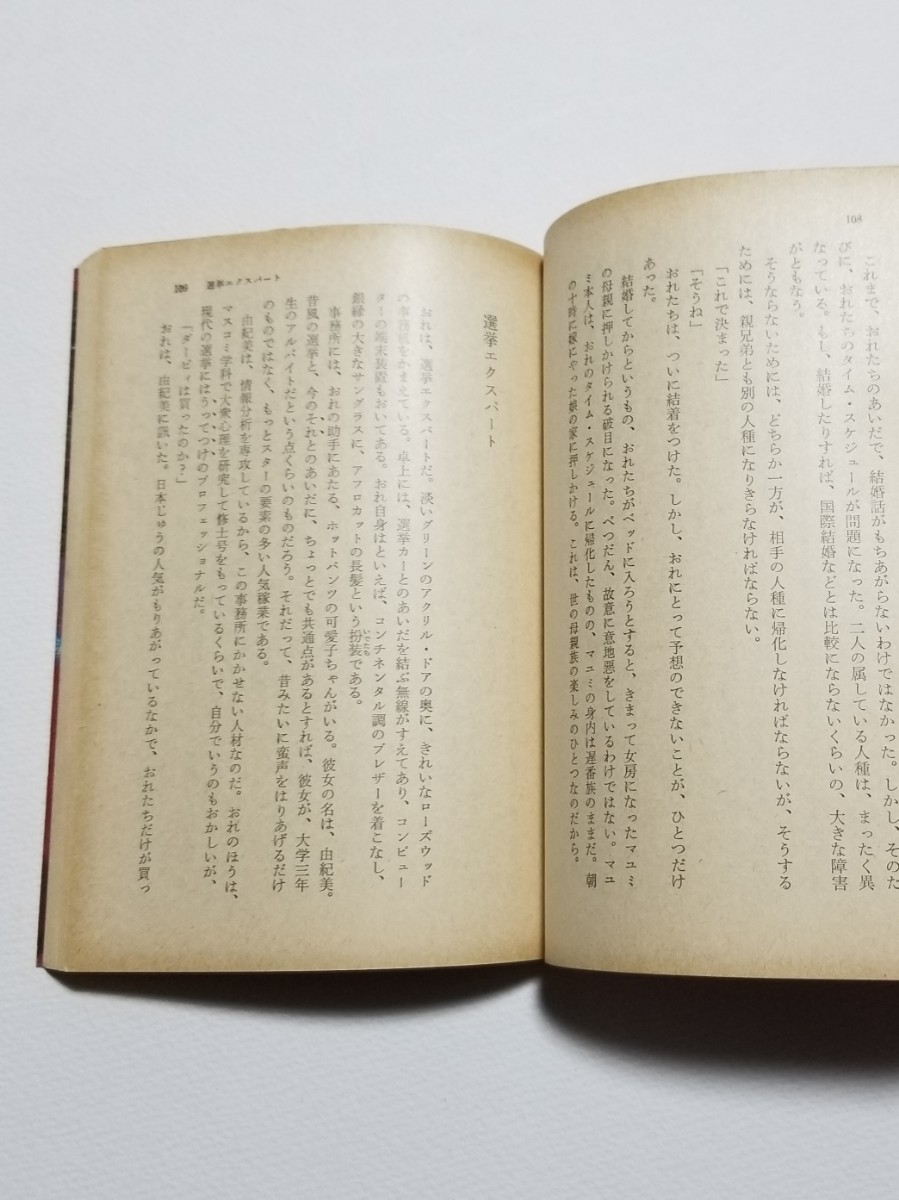 108
これまで、おれたちのあいだで、結婚話がもちあがらないわけではなかった。しかし、そのた
びに、おれたちのタイム・スケジュールが問題になった。二人の属している人種は、まったく異
なっている。もし、結婚したりすれば、国際結婚などとは比較にならないくらいの、大きな障害
がともなう。
そうならないためには、どちらか一方が、相手の人種に帰化しなければならないが、そうする
ためには、親兄弟とも別の人種になりきらなければならない。
「これで決まった」
「そうね」
おれたちは、ついに結着をつけた。しかし、おれにとって予想のできないことが、ひとつだけ
あった。
結婚してからというもの、おれたちがベッドに入ろうとすると、きまって女房になったマユミ
の母親に押しかけられる破目になった。べつだん、故意に意地悪をしているわけではない。マユ
ミ本人は、おれのタイム・スケジュールに帰化したものの、マユミの身内は遅番族のままだ。朝
の十時に嫁にやった娘の家に押しかける。これは、世の母親族の楽しみのひとつなのだから。
109 選挙エクスパート
選挙エクスパート
おれは、選挙エクスパートだ。淡いグリーンのアクリル・ドアの奥に、きれいなローズウッド
の事務机をかまえている。卓上には、選挙カーとのあいだを結ぶ無線がすえてあり、コンピュー
ターの端末装置もおいてある。おれ自身はといえば、コンチネンタル調のブレザーを着こなし、
銀縁の大きなサングラスに、アフロカットの長髪という扮装いでたちである。
事務所には、おれの助手にあたる、ホットパンツの可愛子ちゃんがいる。彼女の名は、由紀美。
昔風の選挙と、今のそれとのあいだに、ちょっとでも共通点があるとすれば、彼女が、大学三年
生のアルバイトだという点くらいのものだろう。それだって、昔みたいに蛮声をはりあげるだけ
のものではなく、もっとスターの要素の多い人気稼業である。
由紀美は、情報分析を専攻しているから、この事務所にかかせない人材なのだ。おれのほうは、
マスコミ学科で大衆心理を研究して修士号をもっているくらいで、自分でいうのもおかしいが、
現代の選挙にはうってつけのプロフェッショナルだ。
「ダービィは買ったのか？」
おれは、由紀美に訊いた。日本じゅうの人気がもりあがっているなかで、おれたちだけが買っ